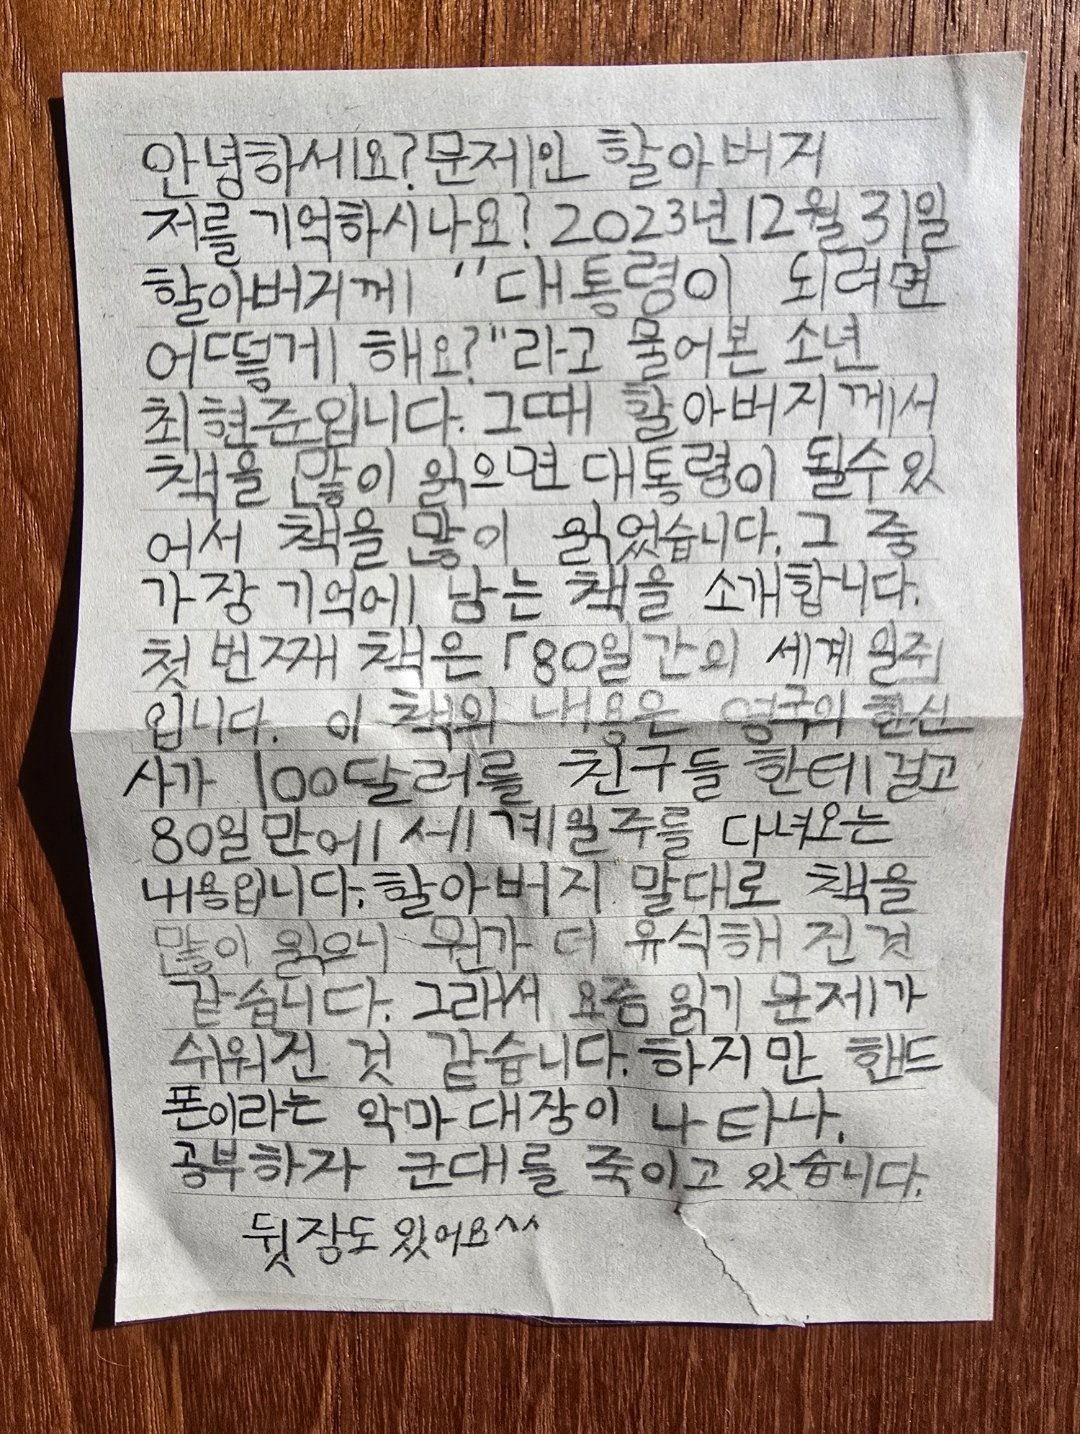 안녕하세요? 문제인 할아버지
저를 기억하시나요? 2023년 12월 31일
할아버지께 "대통령이 되려면
어떻게 해요?"라고 물어본 소년
최현준입니다. 그때 할아버지께서
책을 많이 읽으면 대통령이 될수있
어서 책을 많이 읽었습니다. 그 중
가장 기억에 남는 책을 소개합니다.
첫 번째 책은 「80일간의 세계일주
입니다. 이 책의 내용은 영국의 한신
사가 100달러를 친구들한테 걸고
80일만에 세계일주를 다녀오는
내용입니다. 할아버지 말대로 책을
많이 읽으니 뭔가 더 유식해 진 것
같습니다. 그래서 요즘 읽기 문제가
쉬워진 것 같습니다. 하지만 핸드
폰이라는 악마 대장이 나타나,
공부하자 군대를 죽이고 있습니다.
뒷장도 있어요^^